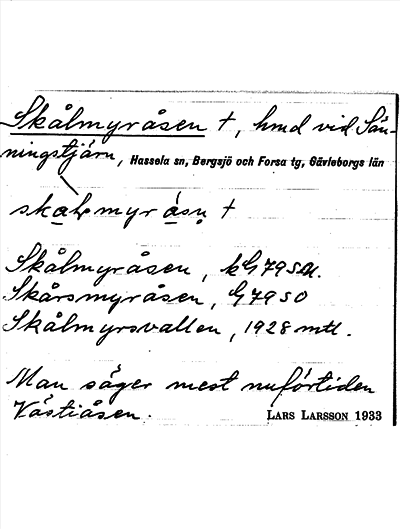 Skålmyråsen †, hmd vid Sän-
ningstjärn, Hassela sn, Bergsjö och Forsa tg, Gävleborgs län
Skålmyråsen, kG 79 SV.
Skårsmyråsen, G 79 SO
Skålmyrsvallen, 1928 mtl.
Man säger mest nuförtiden
Västiåsen.
LARS LARSSON 1933